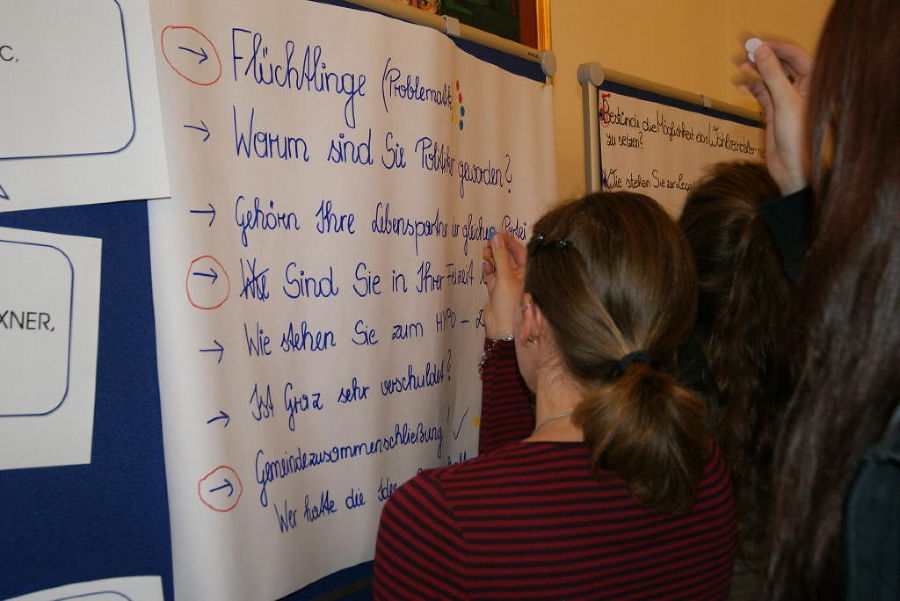 C,
XNER,
→ Flüchtlinge (Problematik
→ Warum sind Sie Politiker geworden?
→ Gehörn Ihre Lebenspartner gleichen Partei
→ Wie Sind Sie in Ihrer Freizeit
→ Wie stehen Sie zum HYPO –
→ Ist Graz sehr verschuldet?
→ Gemeindezusammenschließung! ✓
Wer hatte die Idee
Bestünde die Möglichkeit das Wahlrechtalter
zu setzen?
Wie stehen Sie zur